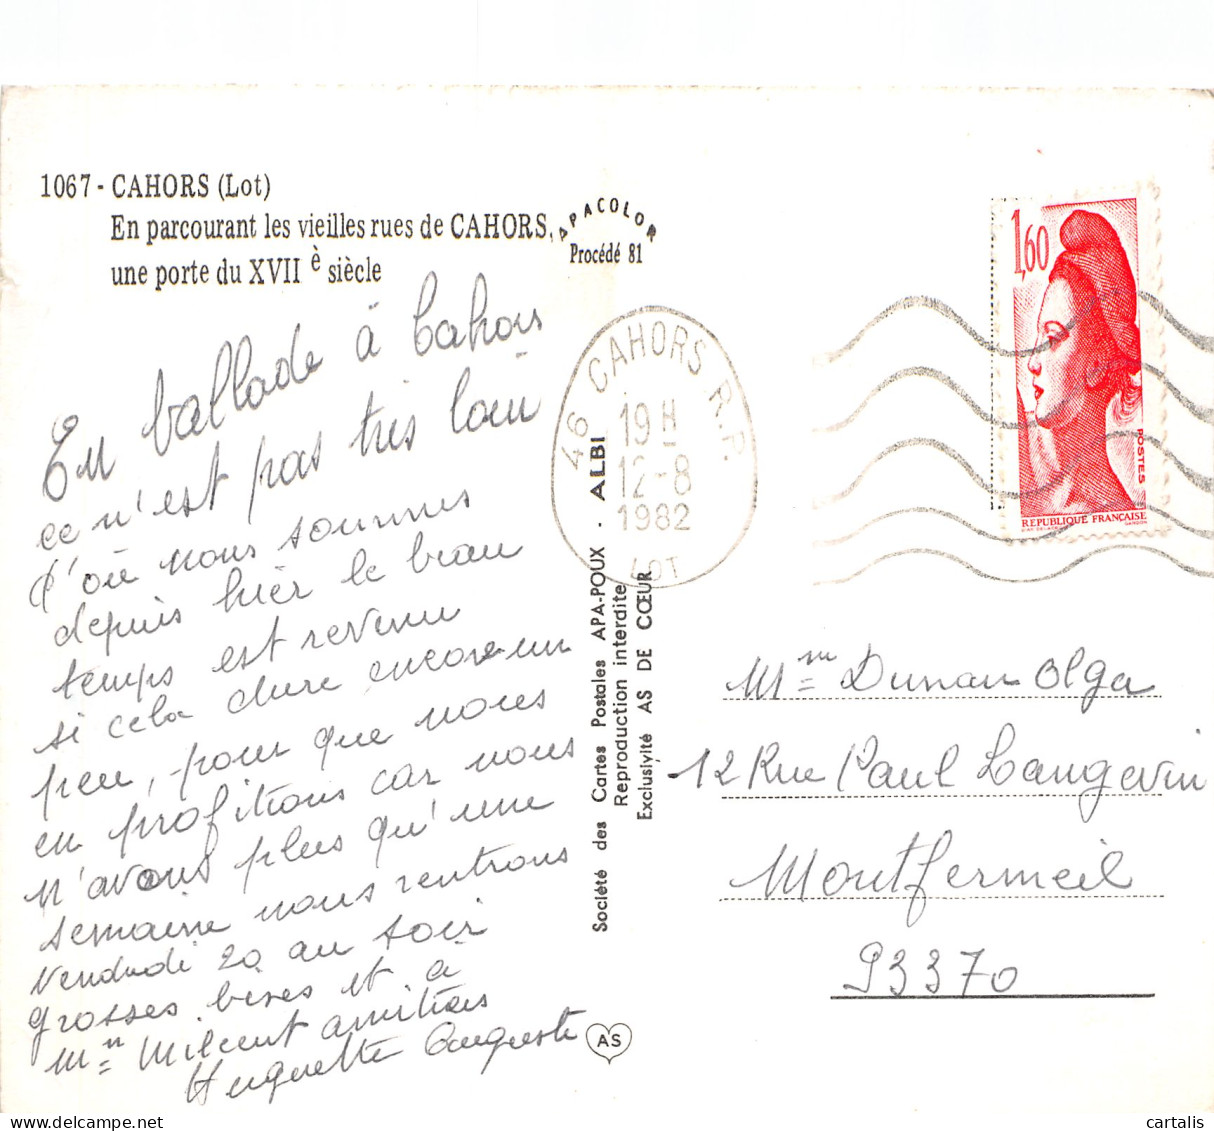 1067 - CAHORS (Lot)
En parcourant les vieilles rues de CAHORS,
une porte du XVIIè siècle
APACOLOR
Procédé 81
En ballade à Cahors
ce n'est pas très loin
d'où nous sommes
depuis hier le beau
temps est revenu
si cela dure encore un
peu, pour que nous
en profitions car nous
n'avons plus qu'une
semaine nous rentrons
Vendredi 20 au soir
grosses bises et à
Mme Milcent amitiés
Huguette Auguste
46 CAHORS R.P.
19 H
12-8
1982
LOT
Société des Cartes Postales APA-POUX - ALBI
Reproduction interdite
Exclusivité AS DE CŒUR
AS
1,60
POSTES
REPUBLIQUE FRANÇAISE
GANDON
Mme Dunan Olga
12 Rue Paul Langevin
Montfermeil
93370
cartalis